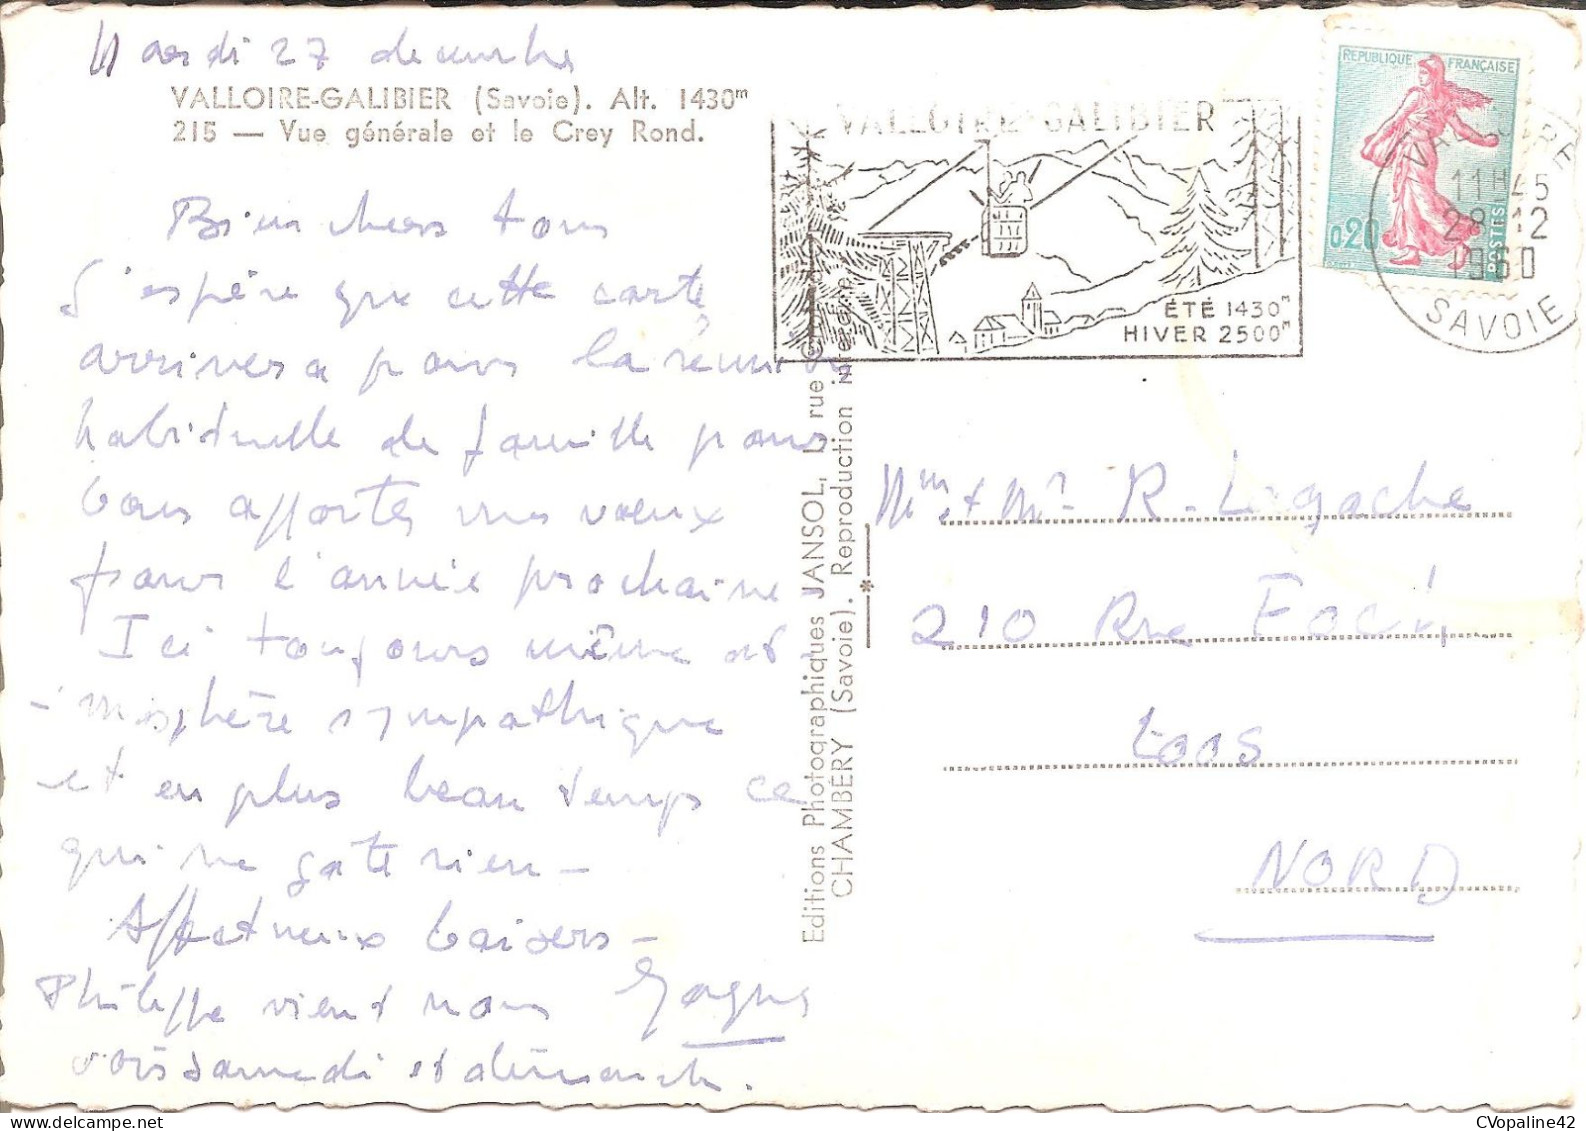 Mardi 27 decembre
VALLOIRE-GALIBIER (Savoie). Alt. 1430m
215 — Vue générale et le Crey Rond.
Bien chers tous
J'espère que cette carte
arrivera pour la réunion
habituelle de famille pour
vous apporter mes vœux
pour l'année prochaine
Ici toujours même at-
-mosphère sympathique
et en plus beau temps ce
qui ne gâte rien –
Affectueux baisers –
Philippe vient nous
voir samedi et dimanche.
Editions Photographiques JANSOL, 1, rue
CHAMBÉRY (Savoie). Reproduction interdite
VALLOIRE-GALIBIER
ÉTÉ 1430m
HIVER 2500m
REPUBLIQUE FRANÇAISE
0,20
POSTES
VALLOIRE
11H45
28-12
1960
SAVOIE
Mme + Mr R. Lagache
210 Rue Foch
Loos
NORD
CVopaline42